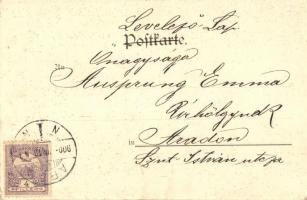 Levelező-Lap
Postkarte.
Őnagysága
Ausprung Emma
Úrhölgynek
in Aradon
Szent-István utcza